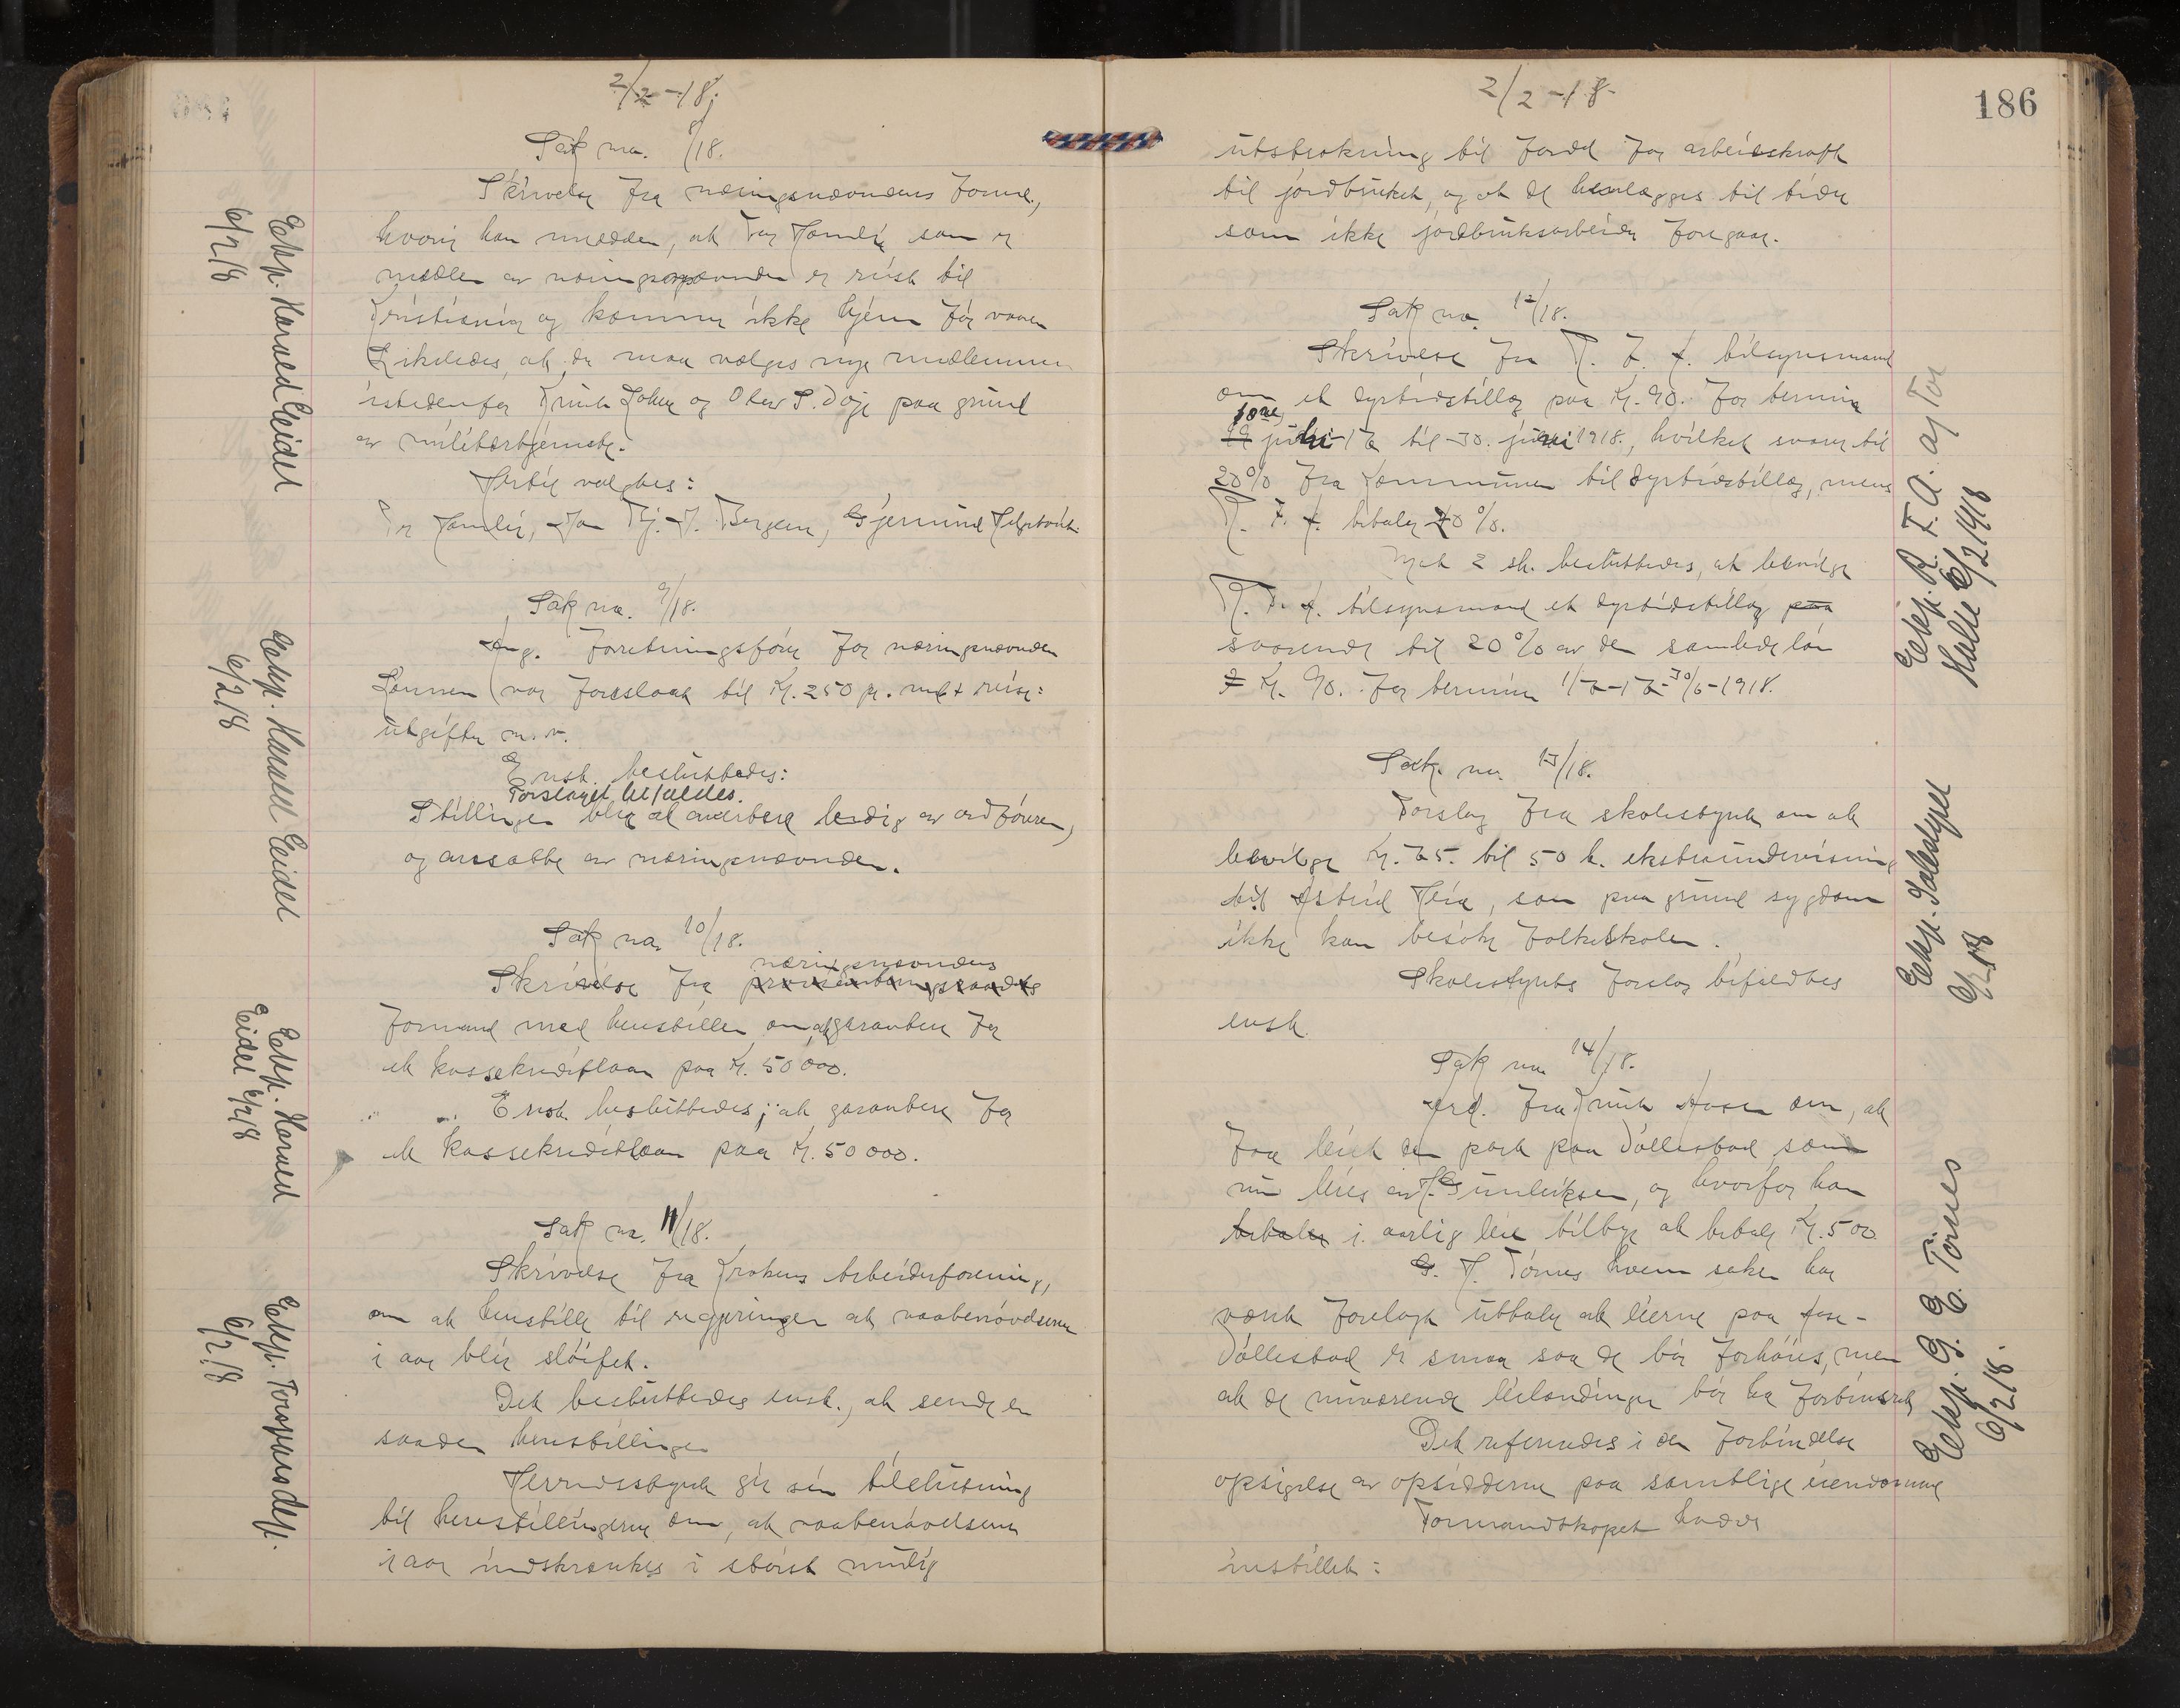 2/2 - 18.
Sak no. 8/18.
Skrivelse fra næringsnævndens formd.,
hvori han melder, at Per Hamli som er
medlem av næringsnævnden er reist til
Kristiania og kommer ikke hjem før vaaren
Likeledes, at der maa vælges nye medlemmer
istedenfor Knut og Olav S. paa grund
av militærtjeneste.
Hertil valgtes:
Per Hamli, Jon Tj. J. Bergem, Gjermund
Eksp. Harald Eeidet
6/2 18
Sak no. 9/18.
Ang. Forretningsfører for næringsnævnden
Lønnen var foreslaat til Kr. 250 pr. md. + reise:
utgifter m.v.
Enst. besluttedes:
Forslaget bifaldes.
Stillingen blir at avertere ledig av ordføreren,
og ansætte av næringsnævnden.
Eksp. Harald Eeidet
6/2 18
Sak no. 10/18.
næringsnævndens
Skrivelse fra provianteringsraadets
formand med henstillen om at garantere for
et kassekreditlaan paa Kr. 50 000.
Enst. besluttedes; at garantere for
et kassekreditlaan paa Kr. 50 000.
Eksp. Harald
Eeidet 6/2 18
Sak no. 11/18.
Skrivelse fra Krokens Arbeiderforening,
om at henstille til regjeringen at vaabenøvelserne
i aar blir sløifet.
Det besluttedes enst., at sende en
saadan henstillingen
Herredsstyret gir sin tilslutning
til henstillingerne om, at vaabenøvelserne
i aar indskrænkes i størst mulig
Eksp. Forsvarsdep.
6/2 18
2/2 - 18.
186
utstrækning til fordel for arbeidskraft
til jordbruket, og at de henlægges til tider
som ikke jordbruksarbeider foregaar.
Sak no. 12/18.
Skrivelse fra R. F. A. tilsynsmand
om et dyrtidstillæg paa Kr. 90. for termin
1ste juli 17 til 30. juni 1918., hvilket svarer til
20% fra Kommunen til dyrtidstillæg, mens
R. F. A. betaler 20%.
Mot 2 st. besluttedes, at bevilge
R. F. A. tilsynsmand et dyrtidstillæg paa
svarende til 20% av den samlede løn
= Kr. 90. for termin 1/7-17-30/6-1918.
Eksp. R. F. A. af Tor
Halie 6/2 1918
Sak. no. 13/18.
Forslag fra skolestyret om at
bevilge Kr. 75. til 50 t. ekstraundervisning
til Astrid Heia, som paa grund sygdom
ikke kan besøke folkeskolen.
Skolestyrets forslag bifaldtes
enst.
Eksp. Skolestyret
6/2 18
Sak no. 14/18.
And. fra Knut Aasen om, at
faa leiet en part paa Søllestad som
nu leies av H. Gunleiksen, og hvorfor han
betaler i aarlig leie tilbyr at betale Kr. 500
G. H. Tónes hvem saken har
været forelagt uttaler at leierne paa
Søllestad er smaa saa de bør forhøies, men
at de nuværende leilændinger bør ha fortrinsret
Det refereredes i den forbindelse
opsigelse av opsidderne paa samtlige eiendomme
Formandskapet hadde
instillet:
Eksp. G. E. Tónes
6/2 18.